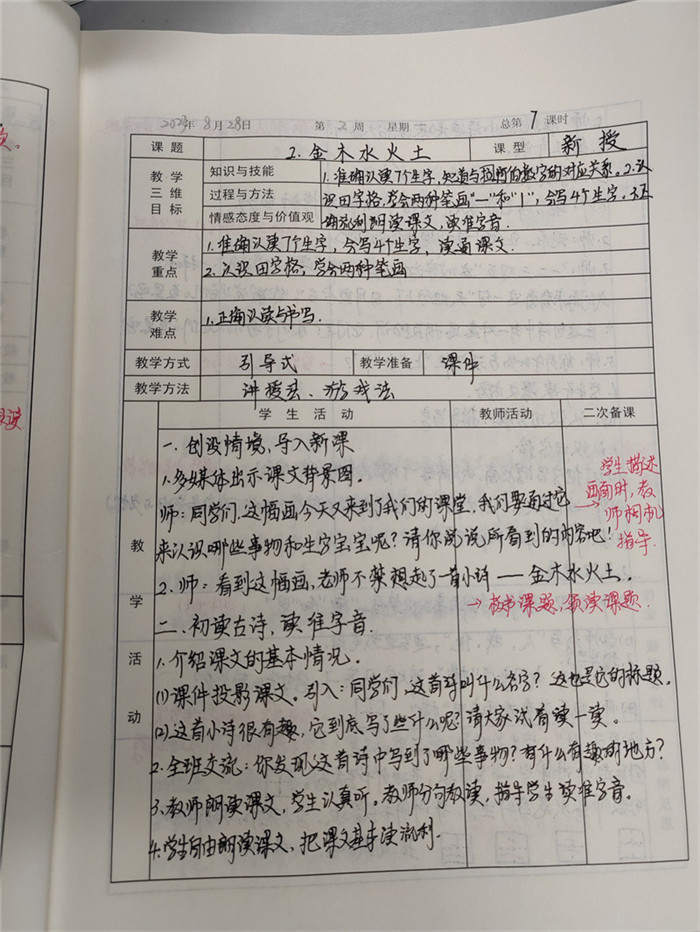 2023年 8月 28日 第 2 周 星期 总第 7 课时
课题 2.金木水火土 课型 新授
教学三维目标
知识与技能 1.准确认读7个生字,知道与图所的数字的对应关系。2.认
过程与方法 识田字格,学会两种笔画"一"和"丨",会写4个生字。3.正
情感态度与价值观 确流利朗读课文,读准字音.
教学重点
1.准确认读7个生字,会写4个生字,读通课文.
2.认识田字格,学会两种笔画
教学难点
1.正确认读与书写.
教学方式 引导式 教学准备 课件
教学方法 讲授法、游戏法
学生活动 教师活动 二次备课
教学活动
一.创设情境,导入新课
1.多媒体出示课文背景图。
师:同学们,这幅画今天又来到了我们的课堂,我们要通过它
来认识哪些事物和生字宝宝呢?请你说说所看到的内容吧!
学生描述
画面时,教
师相机
指导.
2.师:看到这幅画,老师不禁想起了一首小诗——金木水火土.
→板书课题,领读课题.
二.初读古诗,读准字音.
1.介绍课文的基本情况.
(1)课件投影课文。引入:同学们,这首诗叫什么名字?这也是它的标题。
(2)这首小诗很有趣,它到底写了些什么呢?请大家试着读一读。
2.全班交流:你发现这首诗中写到了哪些事物?有什么有趣的地方?
3.教师朗读课文,学生认真听。教师分句教读,指导学生读准字音。
4.学生自由朗读课文,把课文基本读流利.